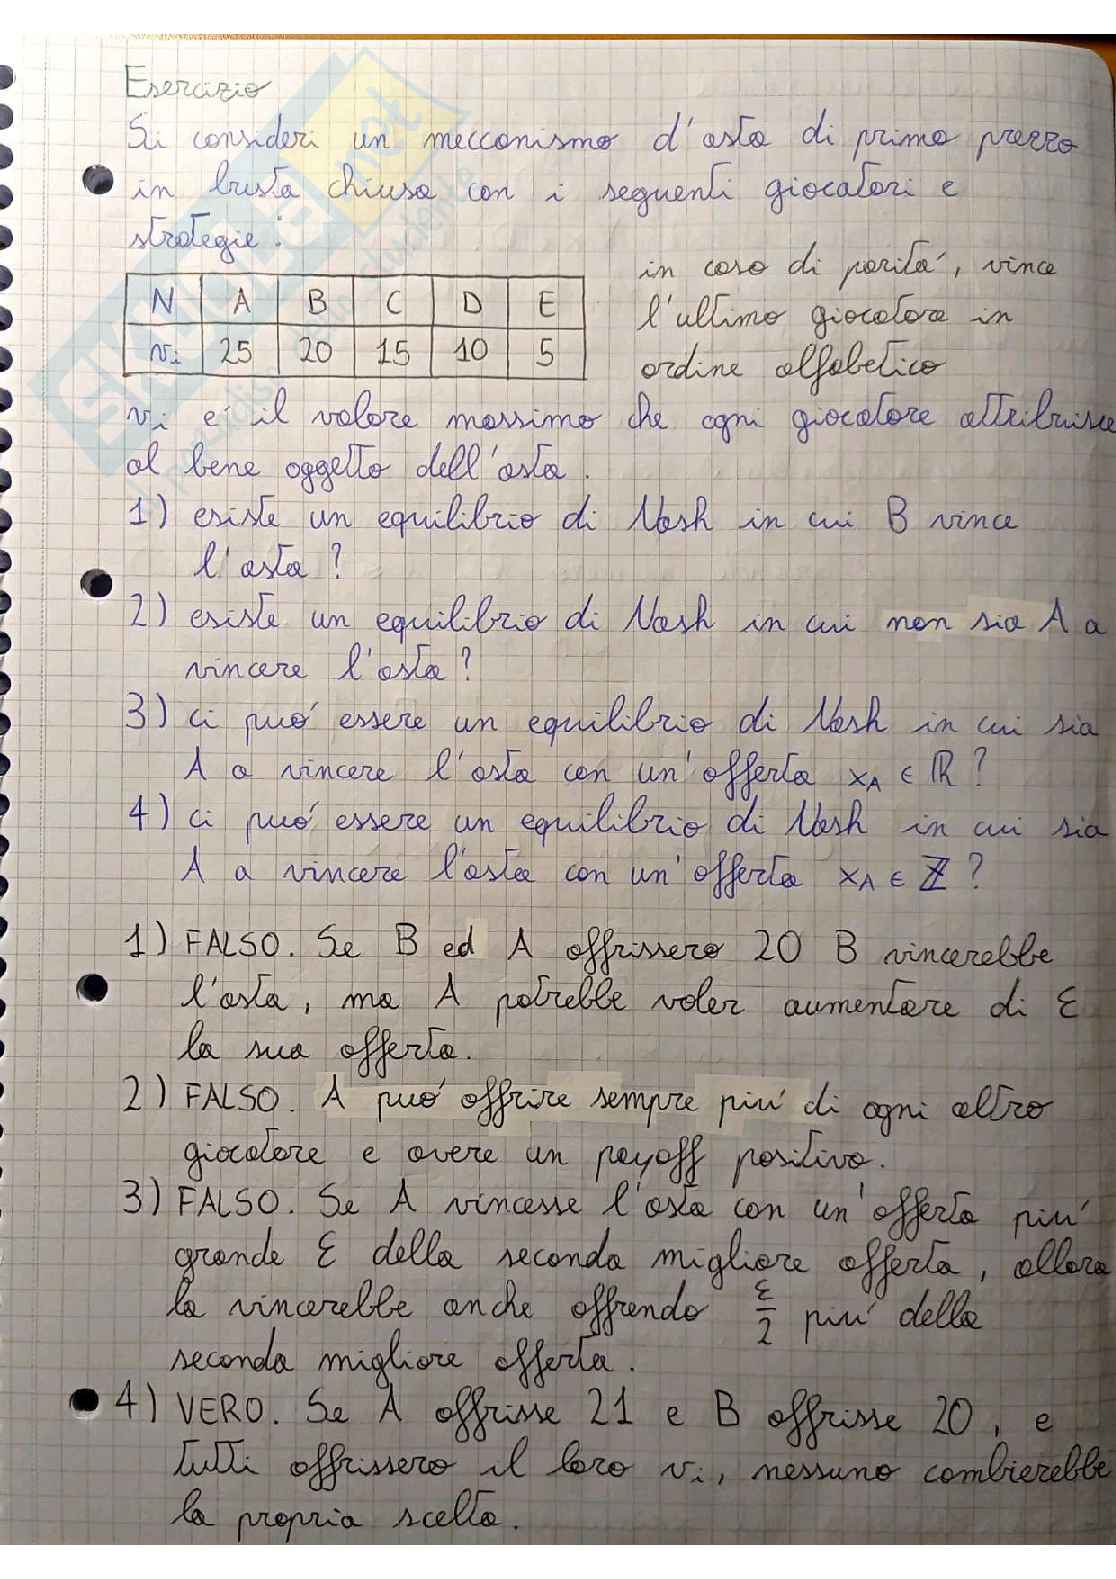 Esercizio
Si consideri un meccanismo d'asta di primo prezzo
in busta chiusa con i seguenti giocatori e
strategie:
N A B C D E
vi 25 20 15 10 5
in caso di paritá, vince
l'ultimo giocatore in
ordine alfabetico
vi é il valore massimo che ogni giocatore attribuisce
al bene oggetto dell'asta.
1) esiste un equilibrio di Nash in cui B vince
l'asta?
2) esiste un equilibrio di Nash in cui non sia A a
vincere l'asta?
3) ci puó essere un equilibrio di Nash in cui sia
A a vincere l'asta con un'offerta xA ∈ ℝ?
4) ci puó essere un equilibrio di Nash in cui sia
A a vincere l'asta con un'offerta xA ∈ ℤ?
1) FALSO. Se B ed A offrissero 20 B vincerebbe
l'asta, ma A potrebbe voler aumentare di ε
la sua offerta.
2) FALSO. A puó offrire sempre piú di ogni altro
giocatore e avere un payoff positivo.
3) FALSO. Se A vincesse l'asta con un'offerta piú
grande ε della seconda migliore offerta, allora
la vincerebbe anche offrendo ε/2 piú della
seconda migliore offerta.
4) VERO. Se A offrisse 21 e B offrisse 20, e
tutti offrissero il loro vi, nessuno cambierebbe
la propria scelta.